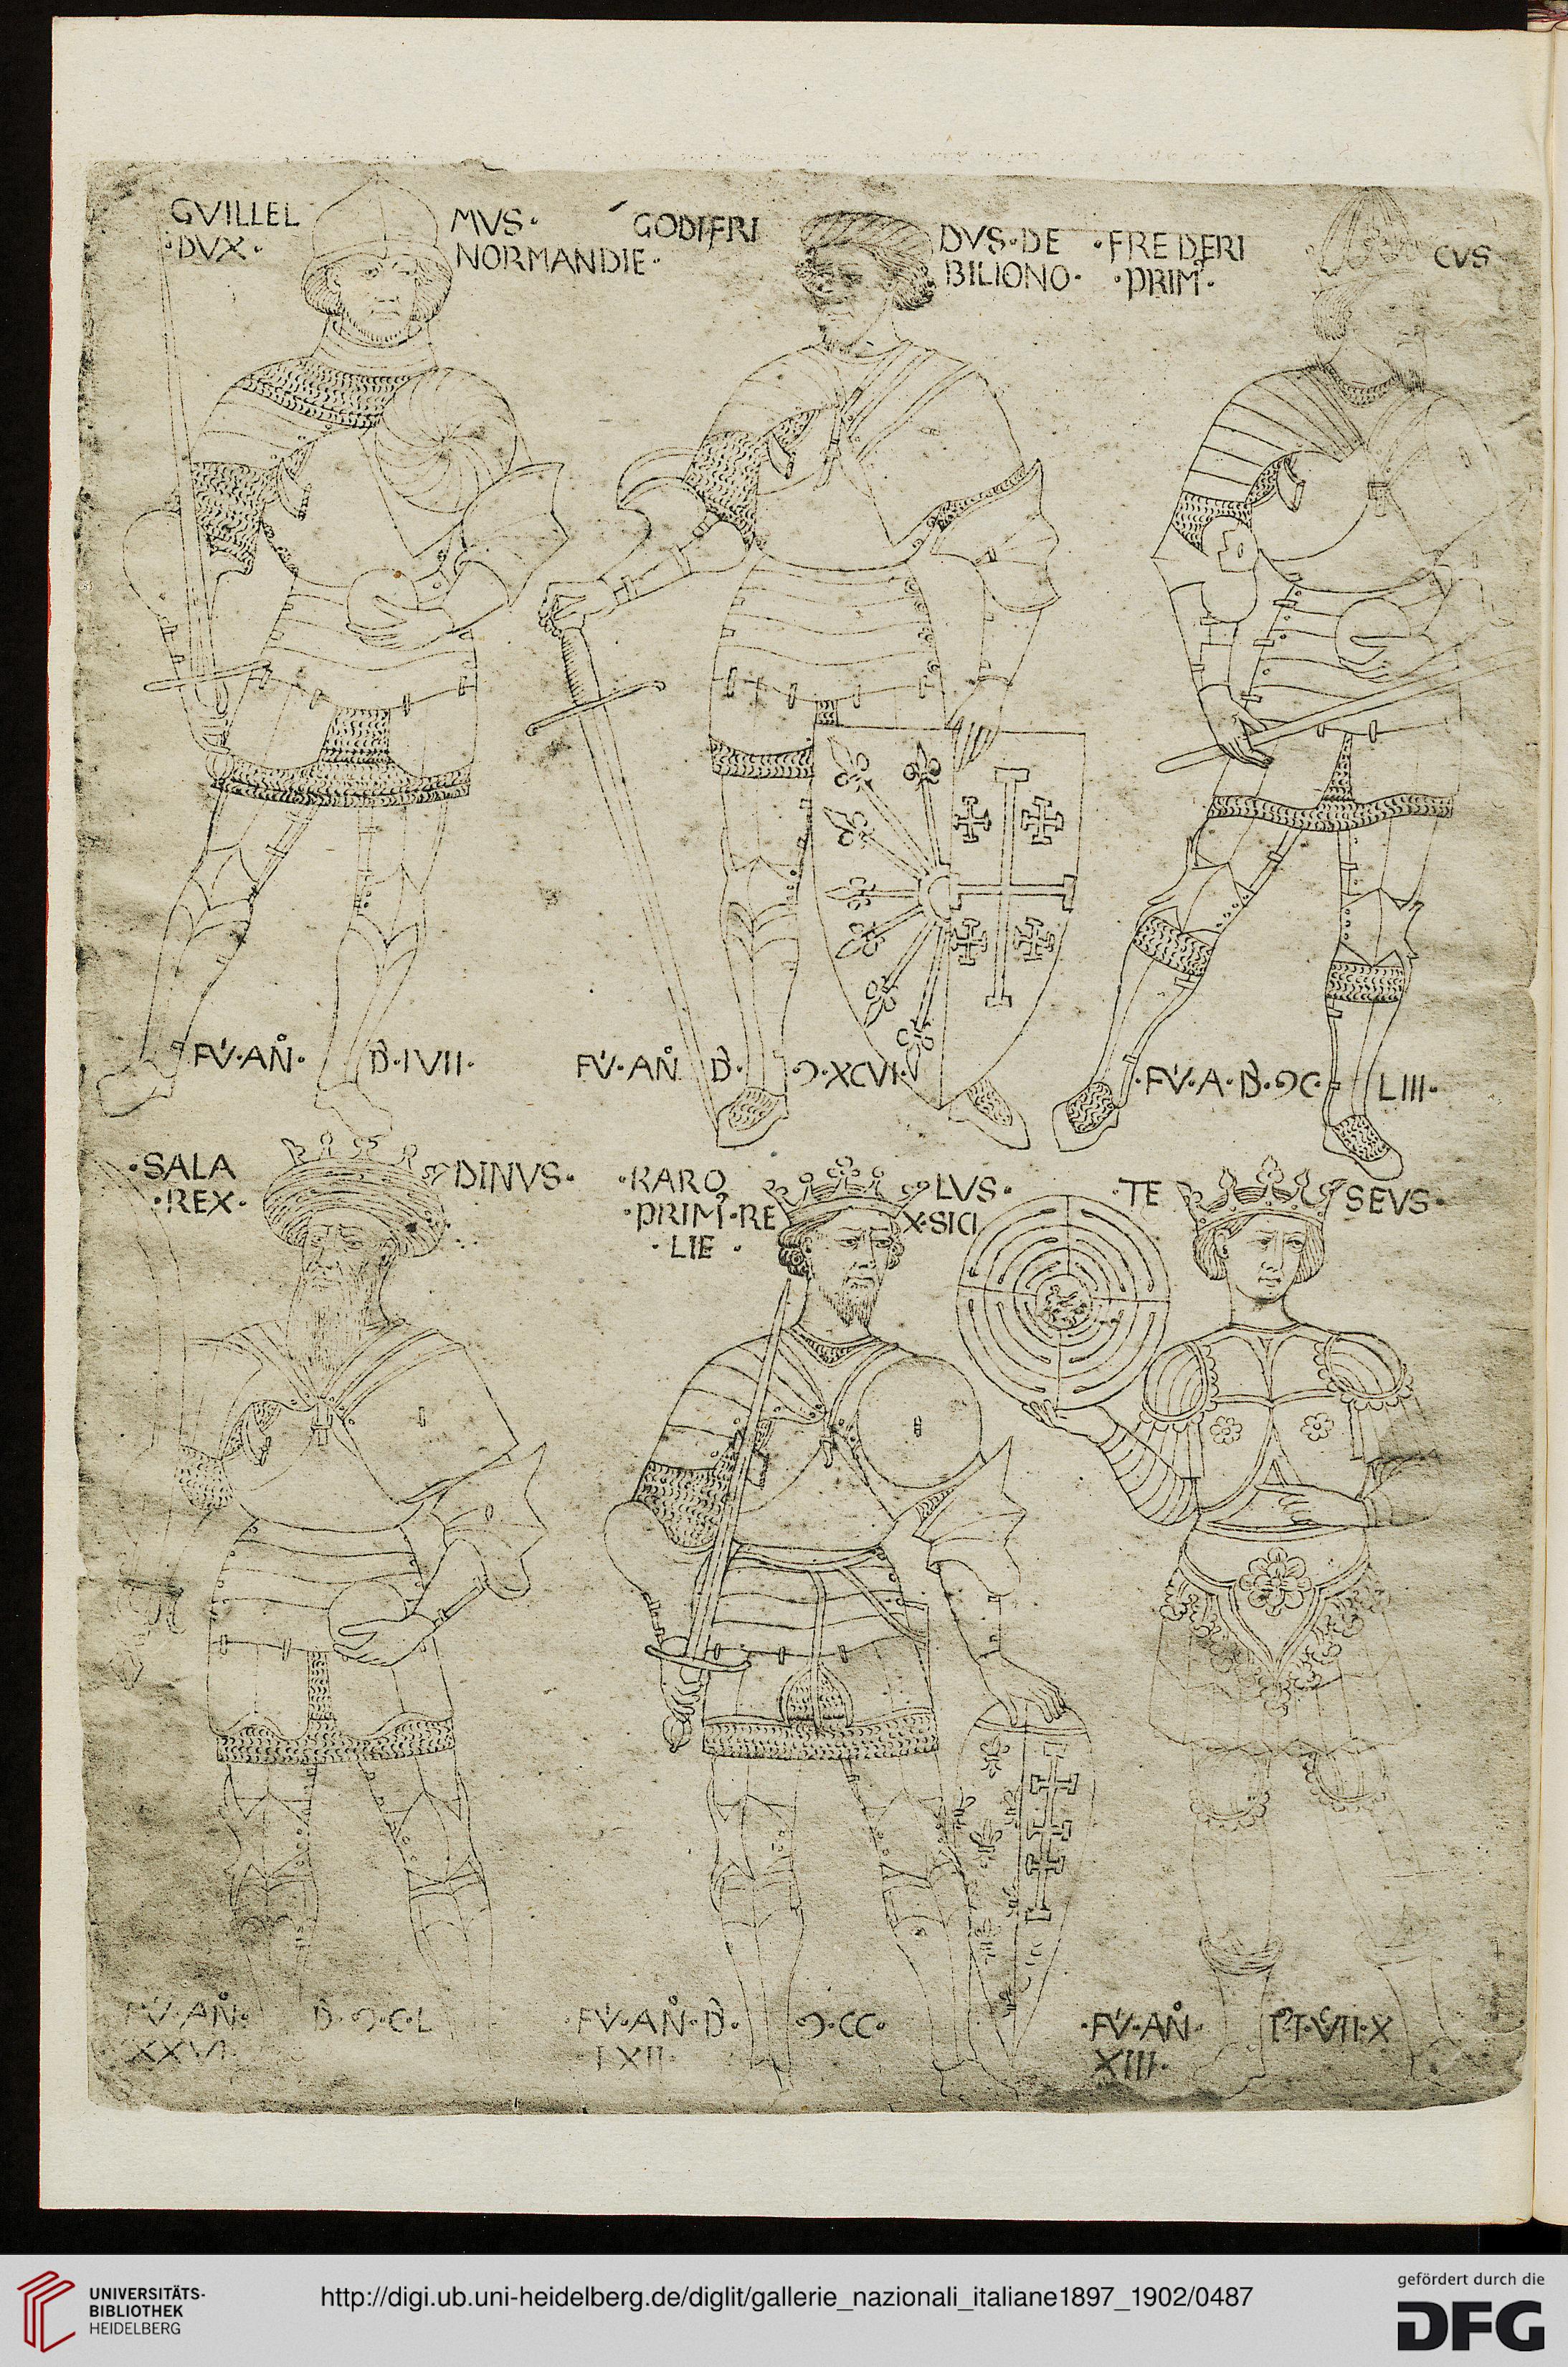 GVILLEL MVS·
·DVX· NORMANDIE·
GODIFRI DVS·DE
BILIONO·
·FREDERI CVS
·PRIM·
FV·AN· D·IVII·
FV·AN D· Ↄ·XCVI·
·FV·A·D·ↃC· LIII·
·SALA DINVS·
·REX·
·KARO LVS·
·PRIM·RE X·SICI
·LIE·
·TE SEVS·
FV·AN· D·Ↄ·C·L
XXVI
·FV·AN·D· Ↄ·CC·
LXII·
·FV·AN·
XIII·
UNIVERSITÄTS-
BIBLIOTHEK
HEIDELBERG
http://digi.ub.uni-heidelberg.de/diglit/gallerie_nazionali_italiane1897_1902/0487
gefördert durch die
DFG